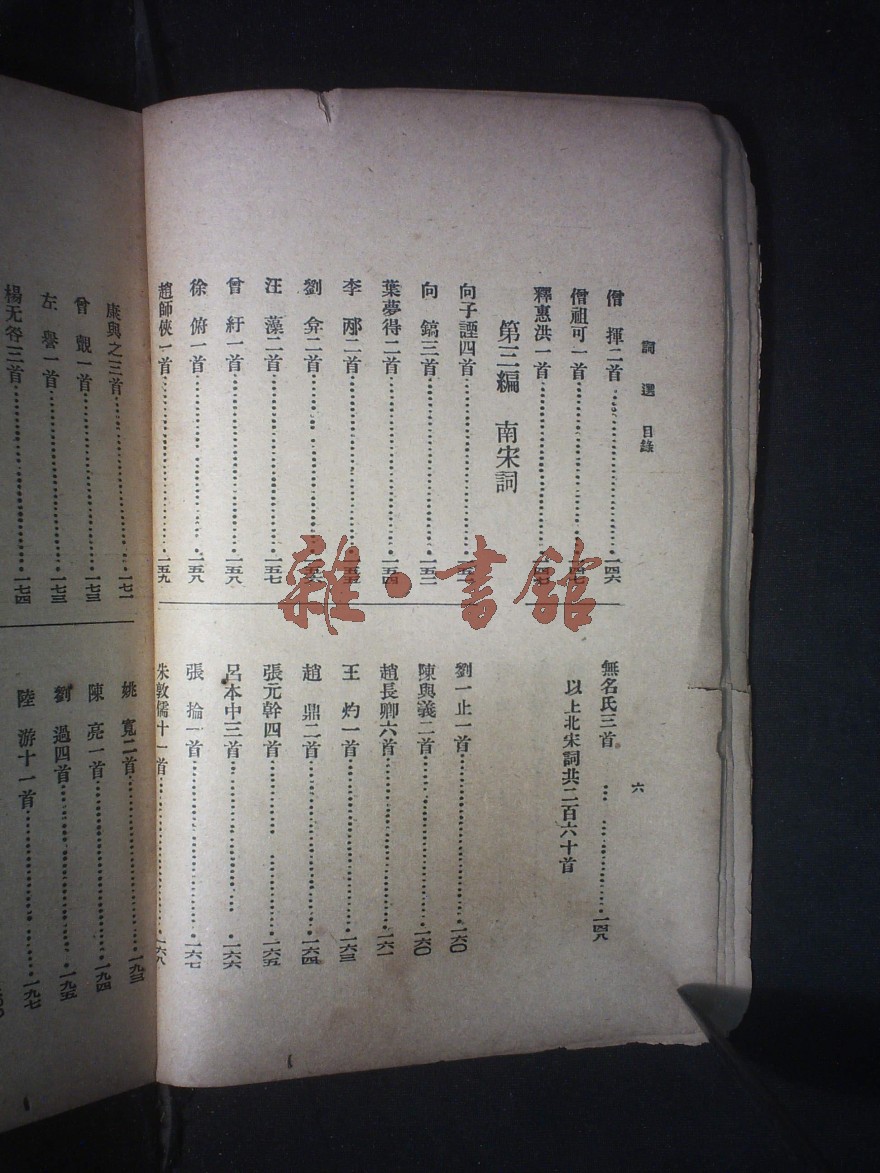 詞選 目錄
六
僧　揮二首⋯⋯一四六
僧祖可一首⋯⋯一四七
釋惠洪一首⋯⋯一四七
無名氏三首⋯⋯一四八
以上北宋詞共二百六十首
第三編　南宋詞
向子諲四首⋯⋯
向　鎬三首⋯⋯一五二
葉夢得二首⋯⋯一五四
李　邴二首⋯⋯一五五
劉　弇二首⋯⋯一五六
汪　藻二首⋯⋯一五七
曾　紆一首⋯⋯一五八
徐　俯一首⋯⋯一五八
趙師俠一首⋯⋯一五九
劉一止一首⋯⋯一六〇
陳與義二首⋯⋯一六〇
趙長卿六首⋯⋯一六一
王　灼一首⋯⋯一六三
趙　鼎二首⋯⋯一六四
張元幹四首⋯⋯一六五
呂本中三首⋯⋯一六六
張　掄一首⋯⋯一六七
朱敦儒十一首⋯⋯一六八
康與之三首⋯⋯一七一
曾　覿一首⋯⋯一七三
左　譽一首⋯⋯一七三
楊无咎三首⋯⋯一七四
姚　寬二首⋯⋯一九三
陳　亮一首⋯⋯一九四
劉　過四首⋯⋯一九五
陸　游十一首⋯⋯一九七
雜·書館